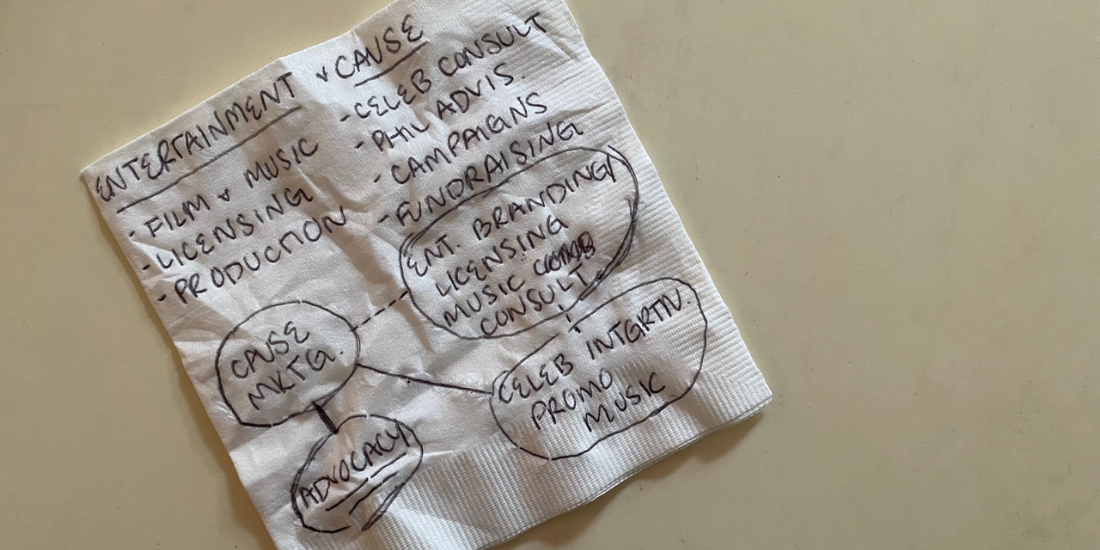 ENTERTAINMENT
- FILM & MUSIC
- LICENSING
- PRODUCTION
& CAUSE
- CELEB CONSULT
- PHIL ADVIS.
- CAMPAIGNS
- FUNDRAISING
ENT. BRANDING/
LICENSING
MUSIC
CONSULT.
CAUSE
MKTG.
CELEB INTGRTN.
PROMO
MUSIC
ADVOCACY